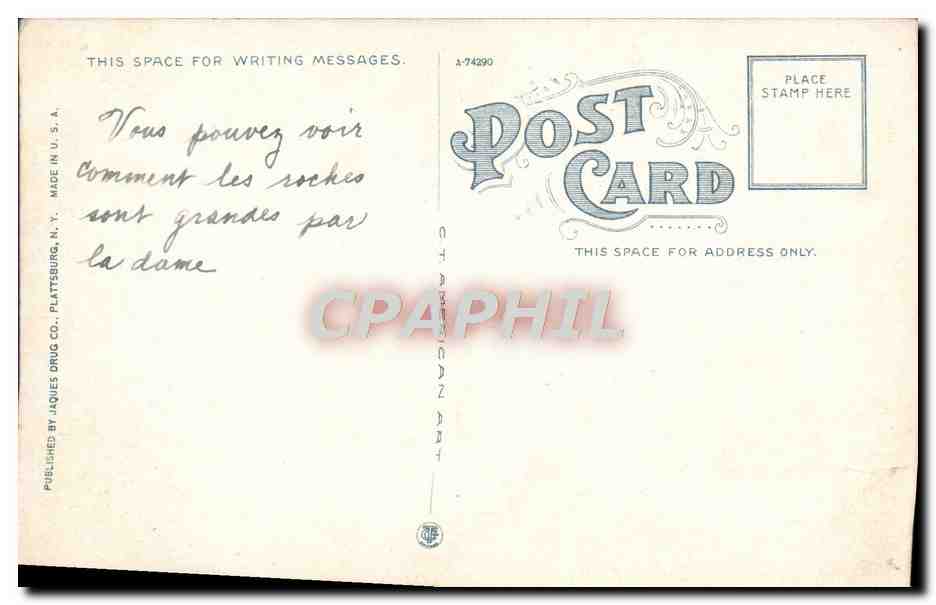 THIS SPACE FOR WRITING MESSAGES.
Vous pouvez voir
comment les roches
sont grandes par
la dame
PUBLISHED BY JAQUES DRUG CO., PLATTSBURG, N. Y. MADE IN U. S. A.
C T AMERICAN ART
A-74290
POST
CARD
PLACE
STAMP HERE
THIS SPACE FOR ADDRESS ONLY.
CPAPHIL